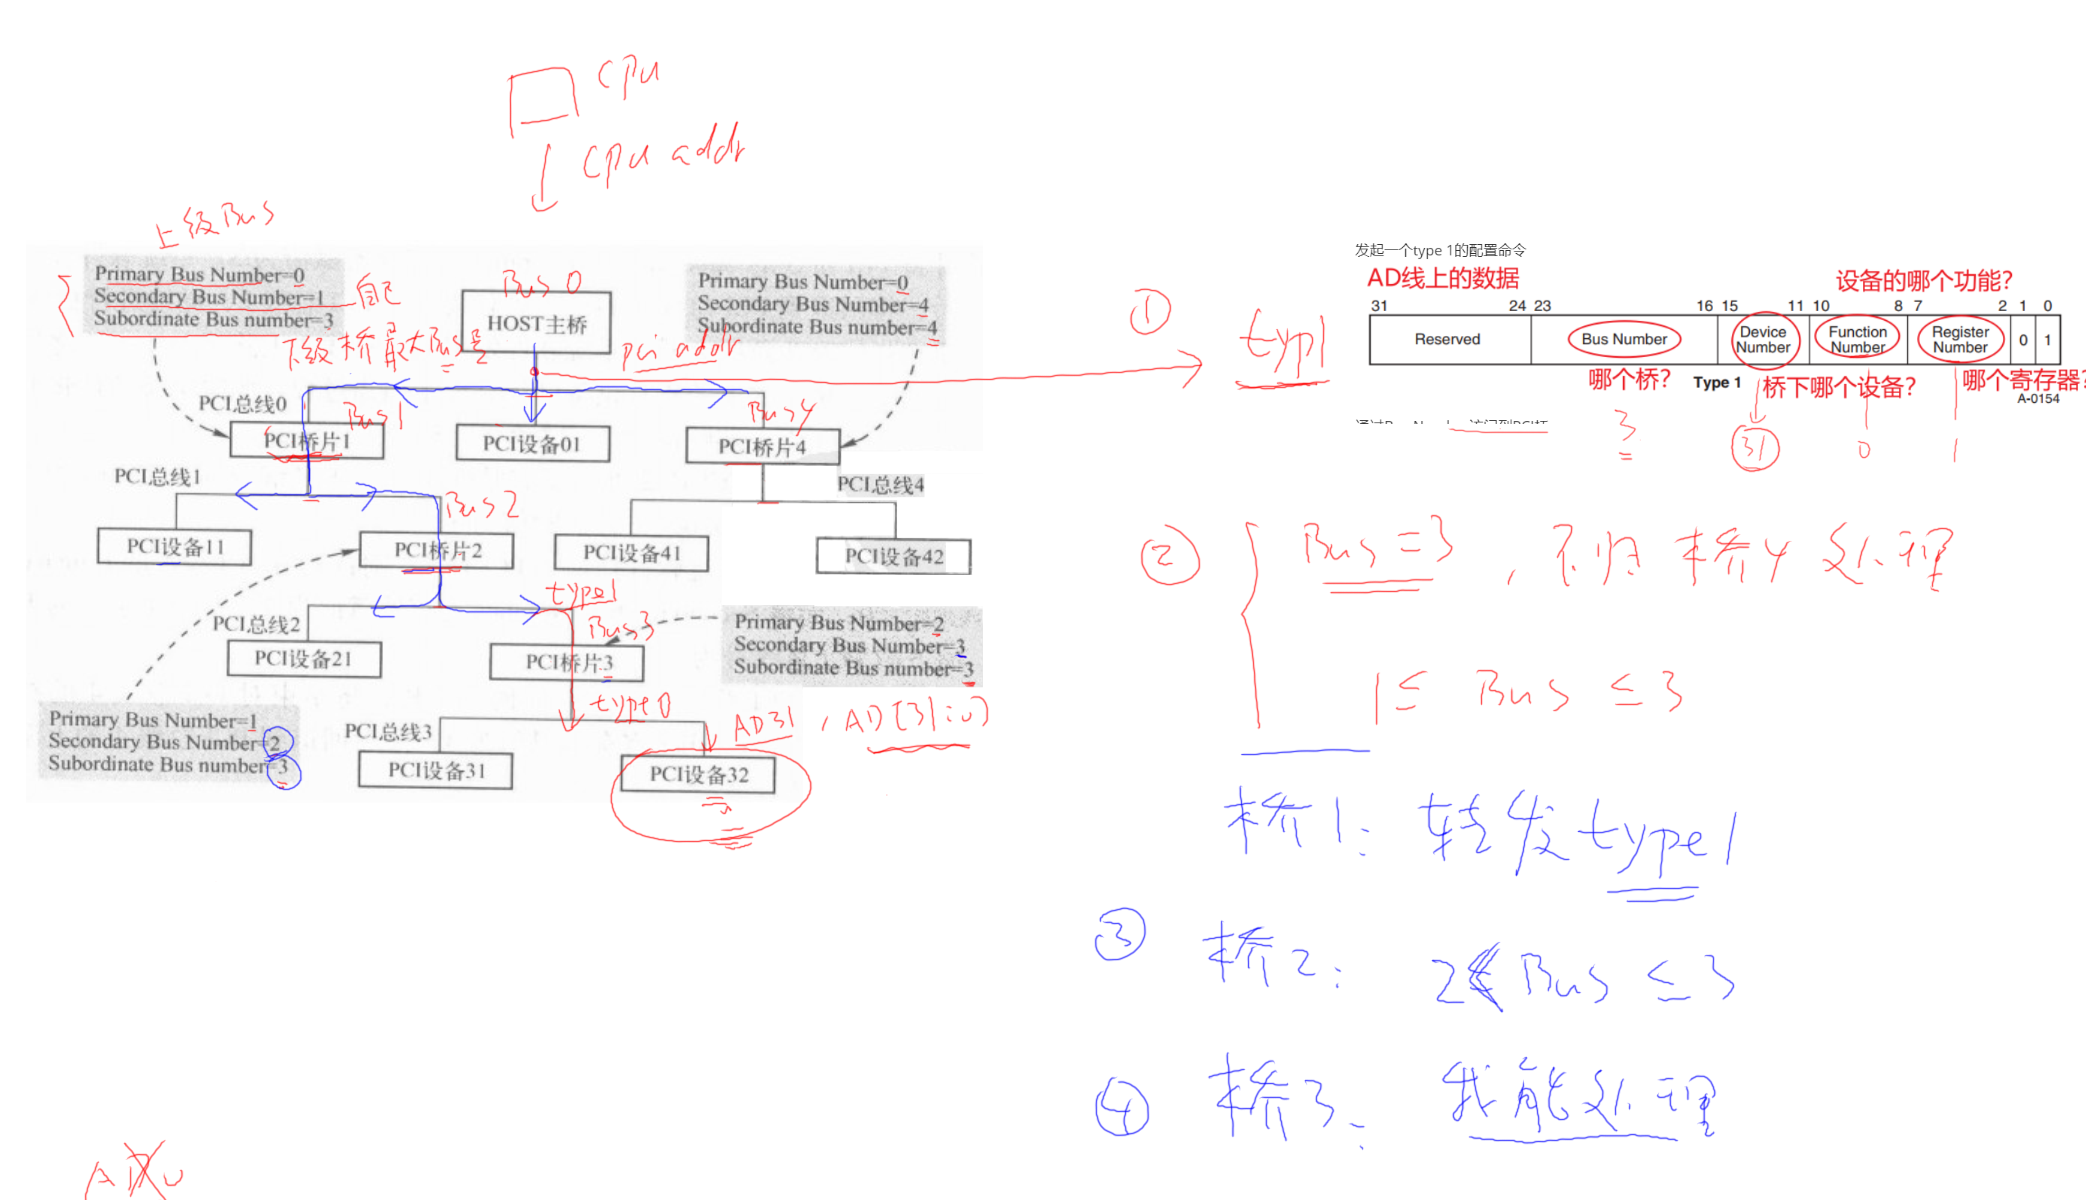 cpu
cpu addr
上级Bus
Primary Bus Number=0
Secondary Bus Number=1 自己
Subordinate Bus number=3
下级桥最大Bus号
Bus 0
HOST主桥
pci addr
Primary Bus Number=0
Secondary Bus Number=4
Subordinate Bus number=4
PCI总线0
Bus1
Bus4
PCI桥片1
PCI设备01
PCI桥片4
PCI总线1
PCI总线4
Bus2
PCI设备11
PCI桥片2
PCI设备41
PCI设备42
type1
PCI总线2
Bus3
PCI设备21
PCI桥片3
Primary Bus Number=2
Secondary Bus Number=3
Subordinate Bus number=3
Primary Bus Number=1
Secondary Bus Number=2
Subordinate Bus number=3
type0
AD31 , AD[31:0]
PCI总线3
PCI设备31
PCI设备32
① typ1
发起一个type 1的配置命令
AD线上的数据
设备的哪个功能?
31 24 23 16 15 11 10 8 7 2 1 0
Reserved Bus Number Device Number Function Number Register Number 0 1
哪个桥? Type 1 桥下哪个设备? 哪个寄存器?
A-0154
3 31 0 1
② Bus=3 , 不归 桥4 处理
1≤ Bus ≤3
桥1: 转发type1
③ 桥2: 2≤Bus ≤3
④ 桥3: 我能处理